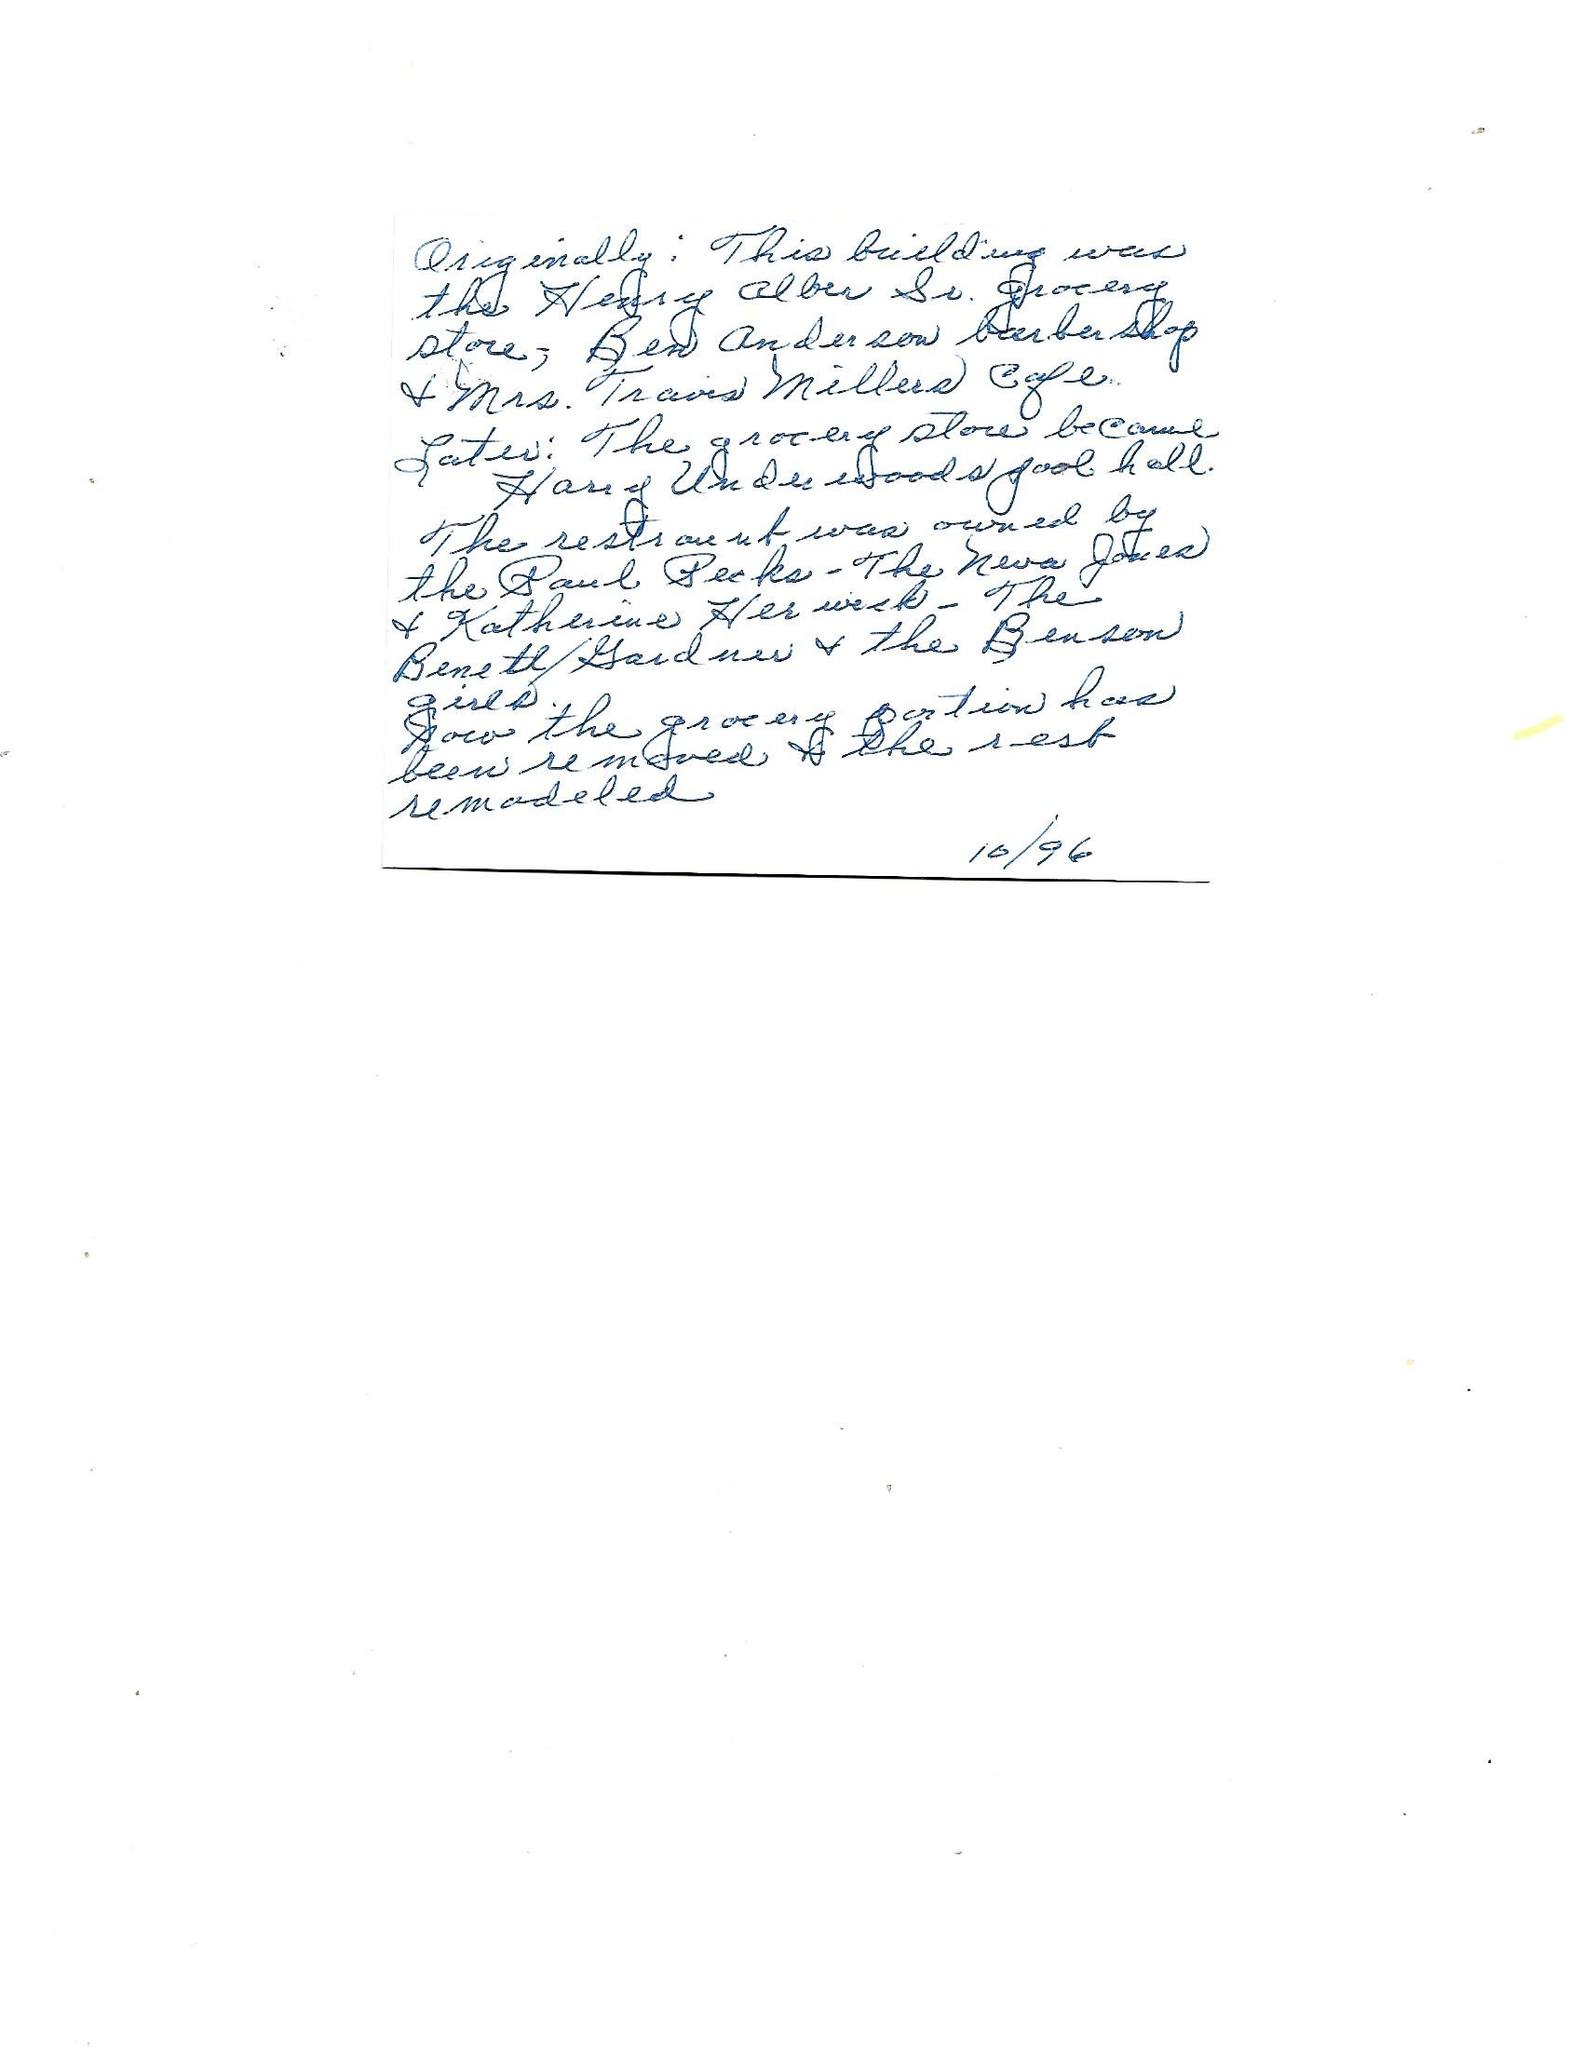 Originally: This building was
the Henry Alber Sr. grocery
store, Ben Anderson barber shop
& Mrs. Travis Millers Cafe.
Later: The grocery store became
Harry Underwoods pool hall.
The restraunt was owned by
the Paul Pecks - The Neva Jones
& Katherine Herwick - The
Benett/Gardner & the Benson
girls.
Now the grocery portion has
been removed & the rest
remodeled
10/96